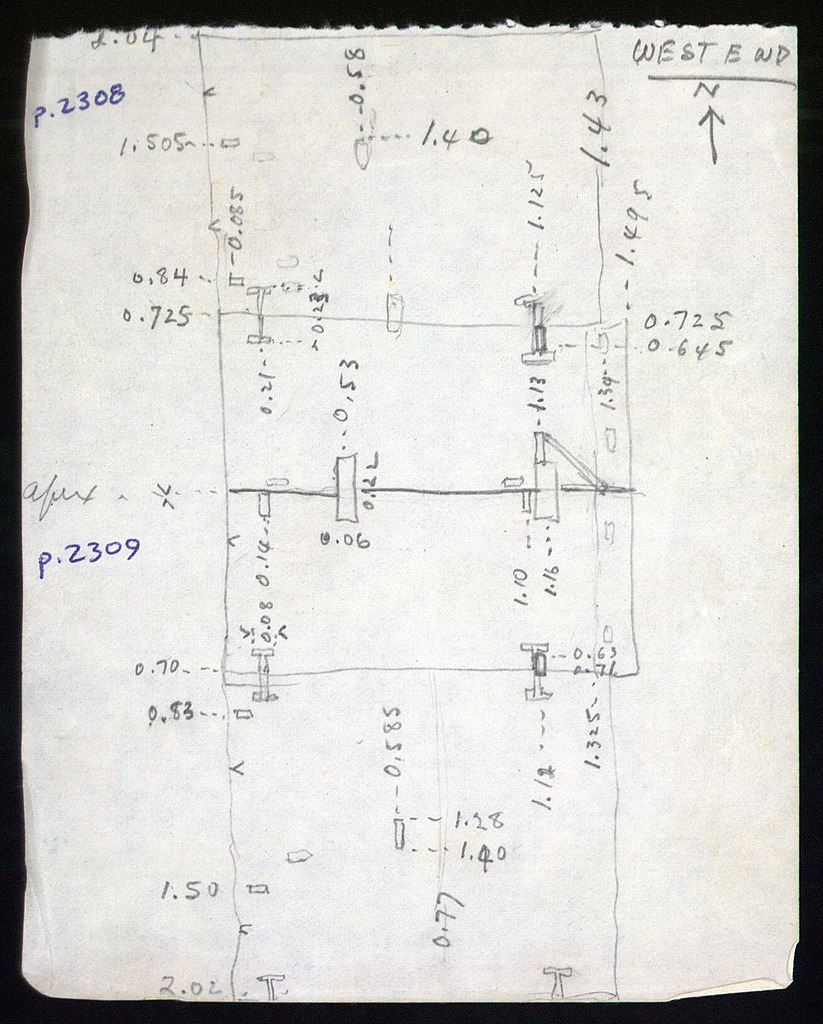 2.04
WEST END
N
p.2308
0.58
1.40
1.43
1.505
1.125
0.085
1.495
0.84
0.725
0.725
0.645
0.21
1.13
1.34
0.53
0.122
apex
0.06
p.2309
0.14
1.10
1.16
0.08
0.63
0.71
0.70
0.83
0.585
1.12
1.325
1.28
1.40
1.50
0.77
2.02